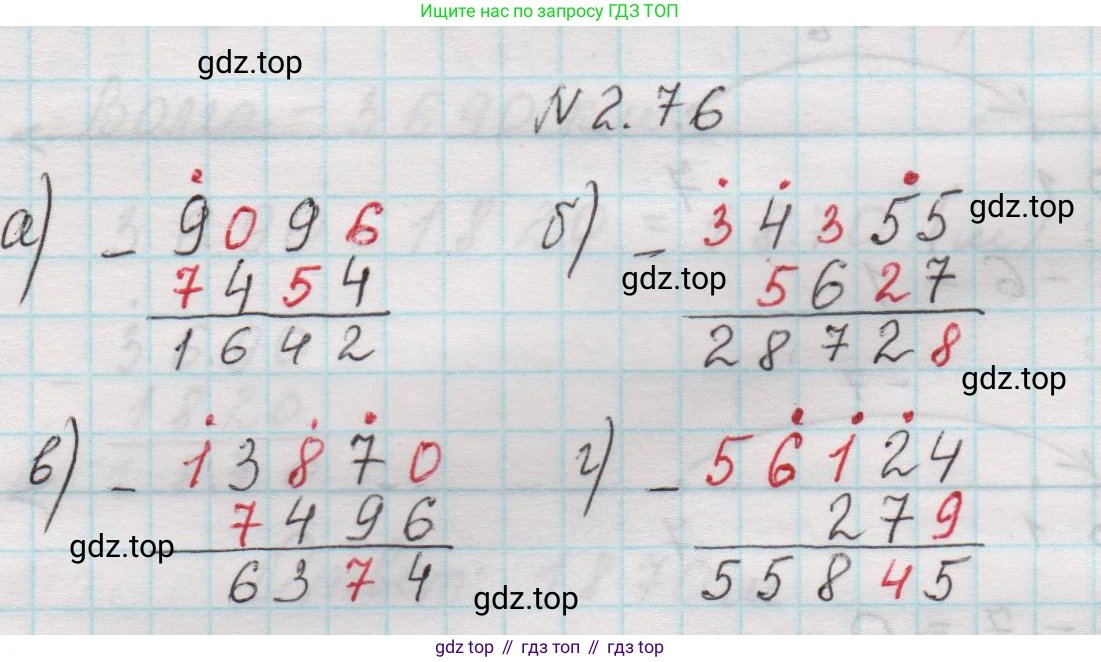 Ищите нас по запросу ГДЗ ТОП
gdz.top
N 2.76
а) - 9096
7454
1642
б) - 34355
gdz.top
5627
gdz.top
28728
gdz.top
в) - 13870
7496
gdz.top
6374
г) - 56124
279
55845
gdz.top
gdz top // гдз топ // гдз top